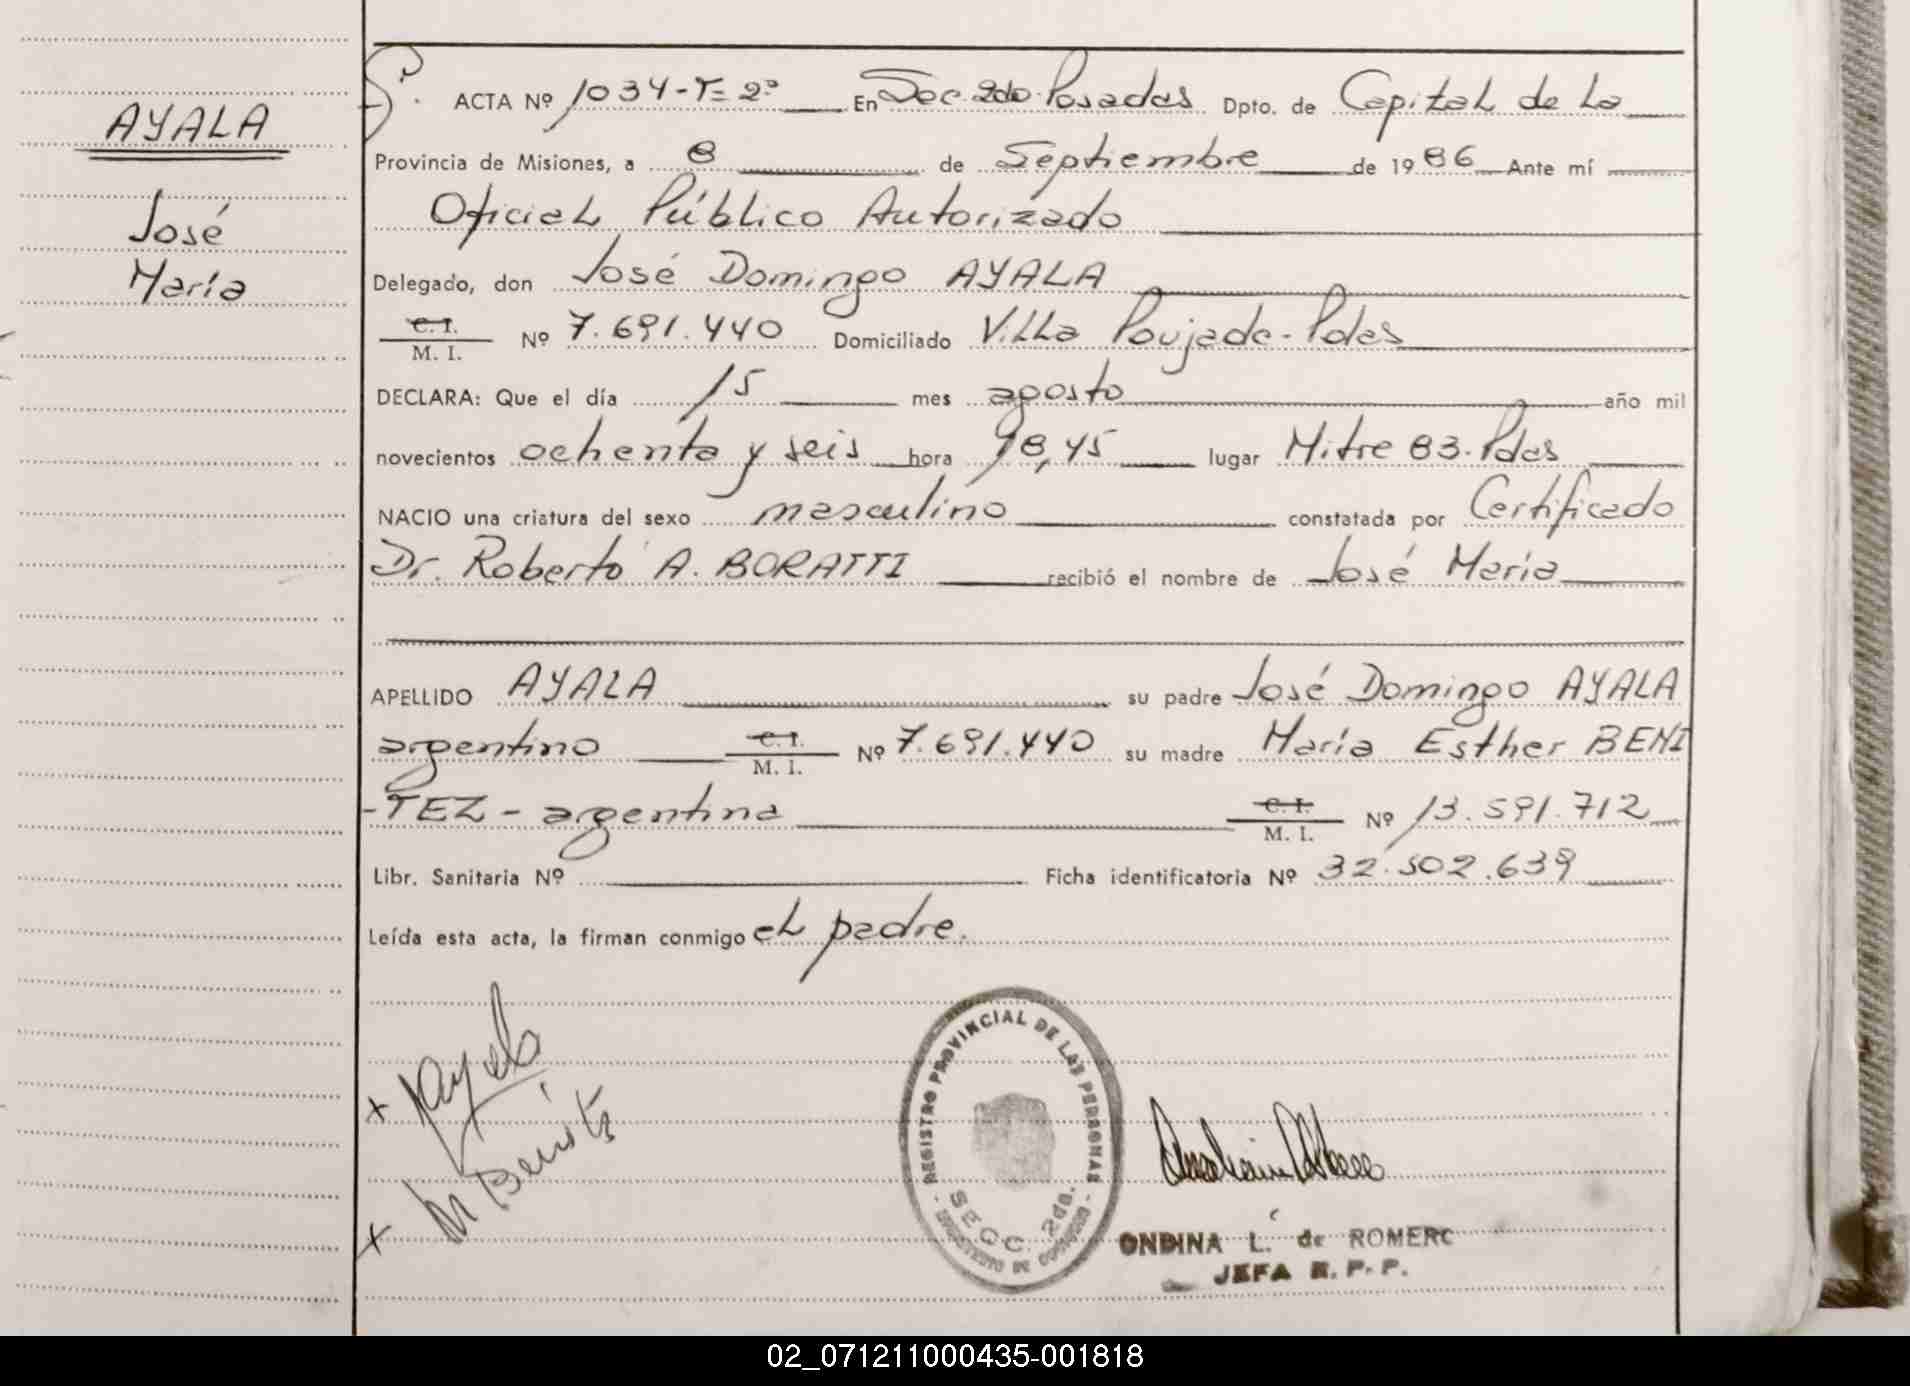 AYALA
José
María
ACTA Nº 1034-T= 2º En Sec. 2da. Posadas Dpto. de Capital de La
Provincia de Misiones, a 8 de Septiembre de 1986 Ante mí
Oficial Público Autorizado
Delegado, don José Domingo AYALA
C. I.
M. I. Nº 7.691.440 Domiciliado Villa Poujade-Pdas
DECLARA: Que el día 15 mes agosto año mil
novecientos ochenta y seis hora 18,45 lugar Mitre 83. Pdas
NACIO una criatura del sexo masculino constatada por Certificado
Dr. Roberto A. BORATTI recibió el nombre de José María
APELLIDO AYALA su padre José Domingo AYALA
argentino C. I. M. I. Nº 7.691.440 su madre María Esther BENI
-TEZ- argentina C. I. M. I. Nº 13.591.712
Libr. Sanitaria Nº Ficha identificatoria Nº 32.502.639
Leída esta acta, la firman conmigo el padre.
x Ayala
x M Benitz
REGISTRO PROVINCIAL DE LAS PERSONAS
SECC. 2da.
ONDINA L. de ROMERO
JEFA R. P. P.
02_071211000435-001818